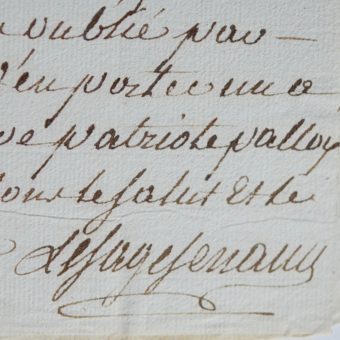 oublié par
j'en porte un a
ve patriote palloy
vous le salut Et le
Lesage senault